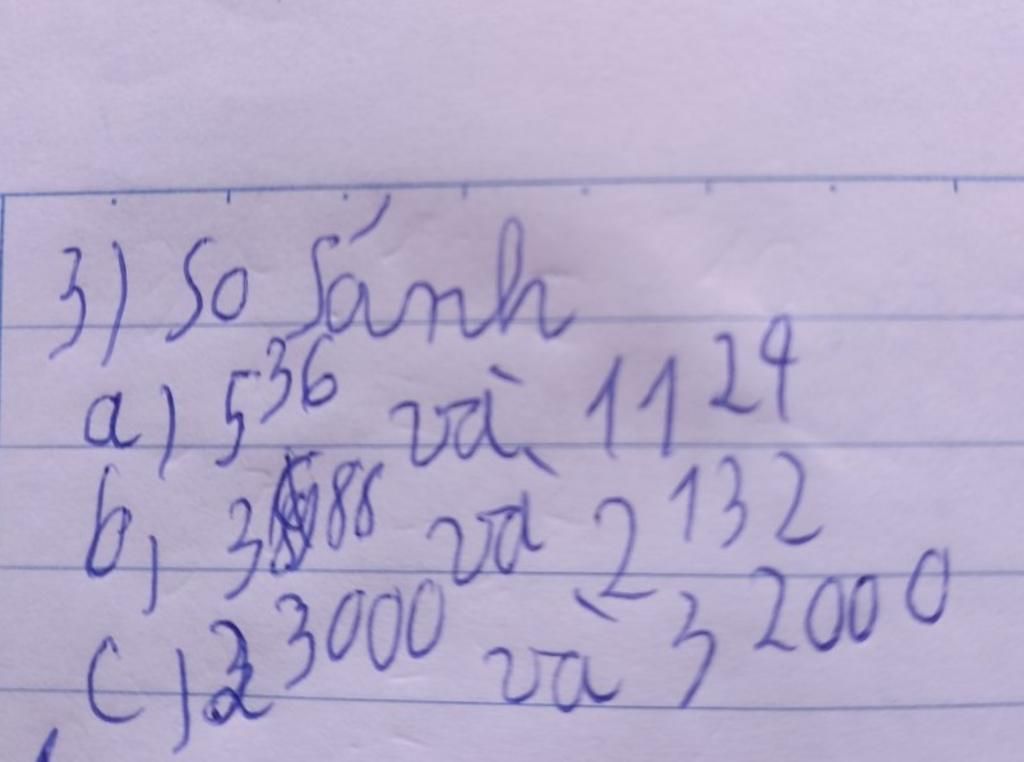 3) So Sánh
a) 5³⁶ và 11²⁴
b, 3⁸⁸ và 2¹³²
c) 2³⁰⁰⁰ và 3²⁰⁰⁰